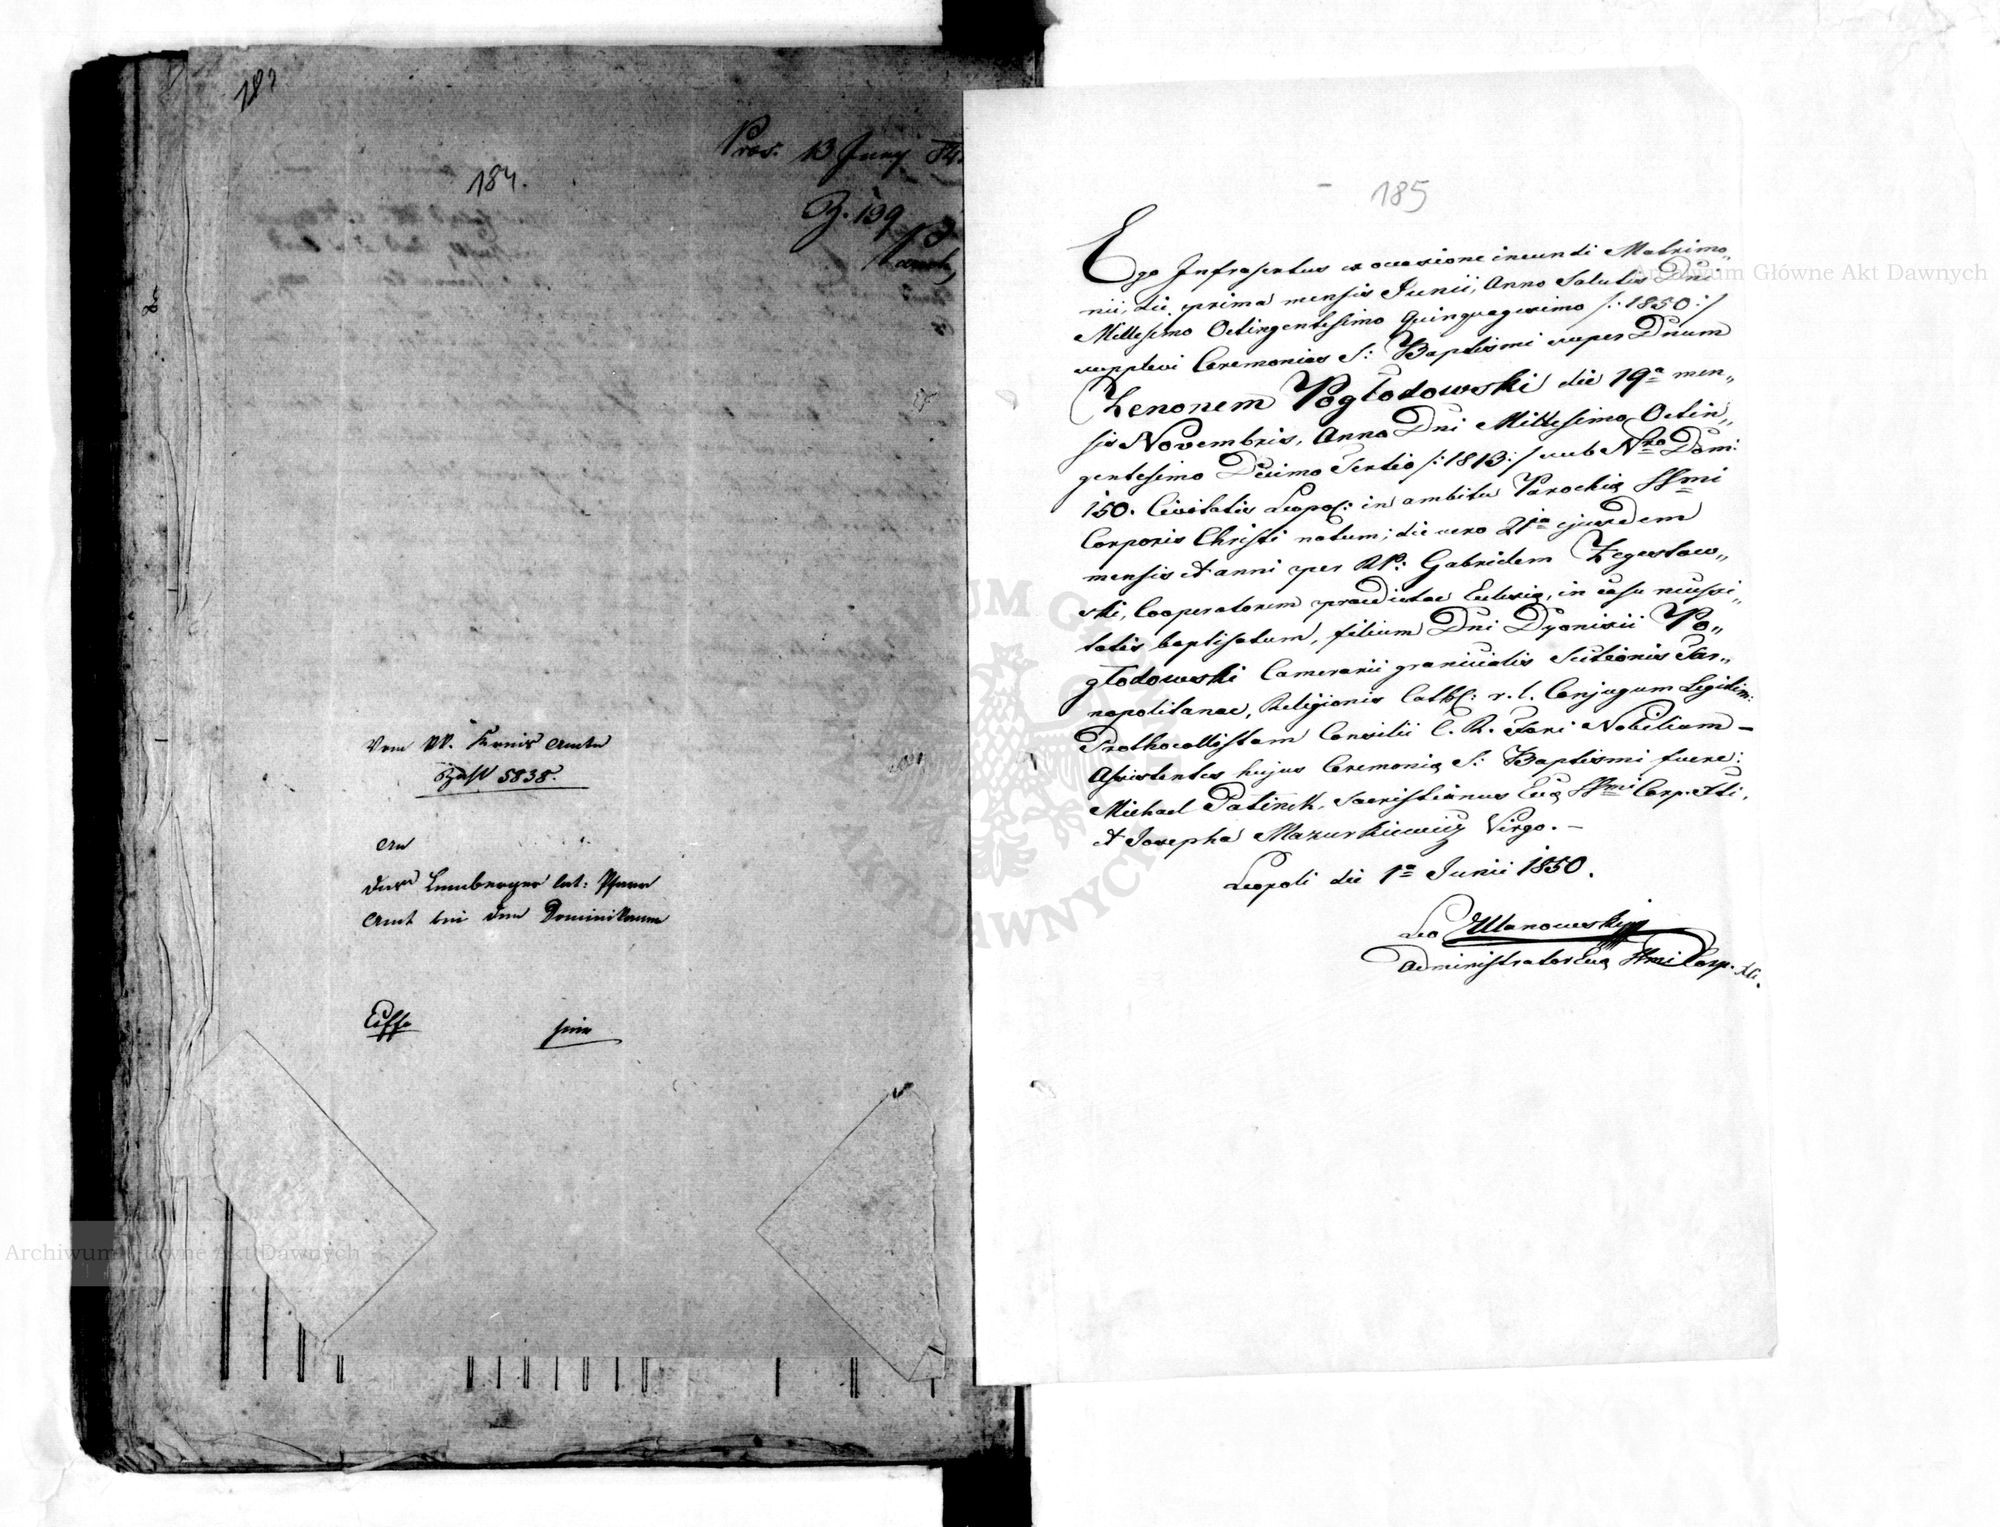 184.
Praes. 13 Juny
Z. 139
Vom K. K. Kreis Amte
Zahl 5838.
An
das Lemberger lat: Pfarr
Amt bei den Dominikanern
185
Ego Infrascriptus ex occasione ineundi Matrimo„
nii, die prima mensis Junii, Anno Salutis Dni
Millesimo Octingentesimo Quinquagesimo /: 1850 :/
supplevi Ceremonias S: Baptismi super Dnum
Zenonem Pogłodowski die 19ª men„
sis Novembris, Anno Dni Millesimo Octin„
gentesimo Decimo Tertio /: 1813 :/ sub Nro Dom:
150. Civitatis Leopol: in ambitu Parochiæ SSmi
Corporis Christi natum; die vero 21ma ejusdem
mensis et anni per RP: Gabrielem Zegestow„
ski, Cooperatorem praedictae Ecclesiæ, in casu necessi„
tatis baptisatum, filium Dni Dyonisii Po„
głodowski Camerarii granicialis Terrae Tar„
nopolitanae, Religionis Cath: r. l. Conjugum Legitim:
Prothocollistam Consilii C. R. Fori Nobilium –
Assistentes hujus Ceremoniæ S: Baptismi fuere:
Michael Patinek, Sacristianus Eccæ SSmi Corp. Xti,
et Josepha Mazurkiewicz Virgo. –
Leopoli die 1ª Junii 1850.
Leo Ulanowski
Administrator Eccæ SSmi Corp. Xti.
Archiwum Główne Akt Dawnych
Archiwum Główne Akt Dawnych
ARCHIWUM GŁÓWNE AKT DAWNYCH